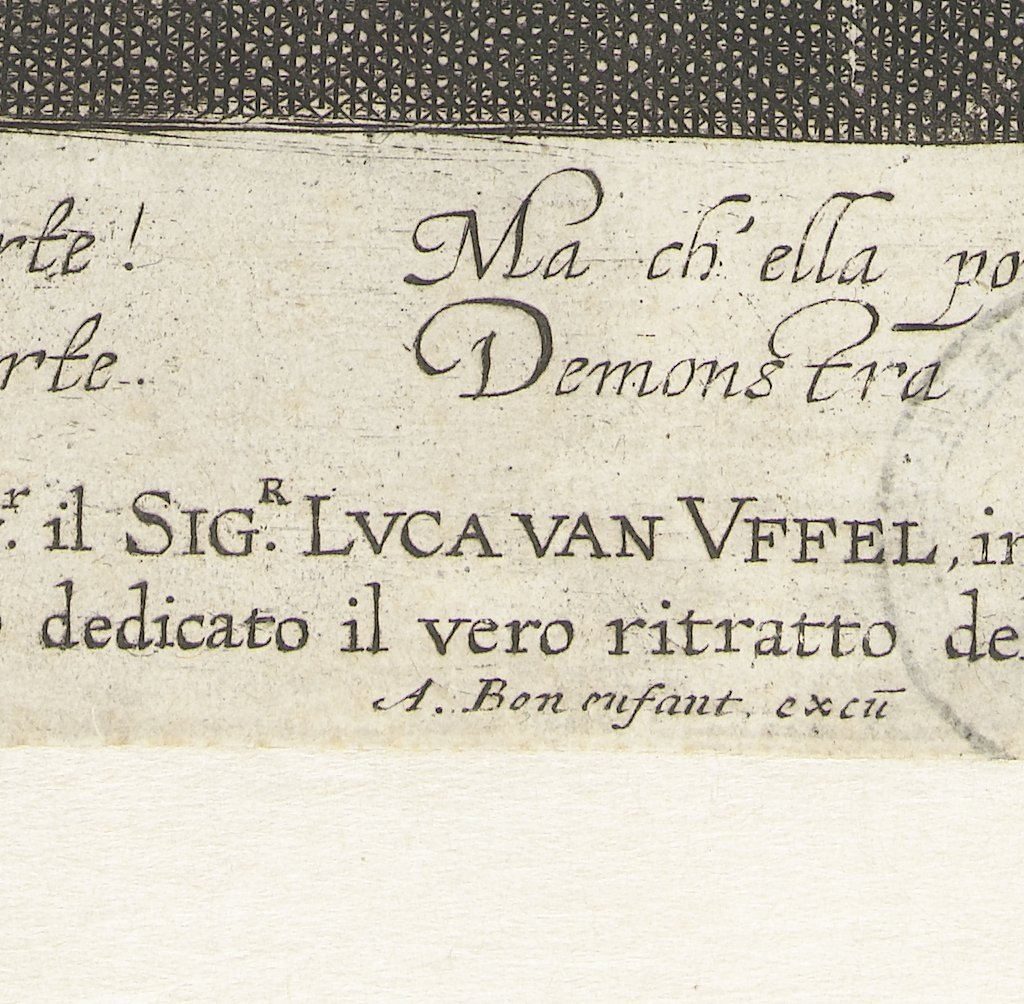 rte! Ma ch'ella po
rte. Demonstra
r. il SIG.R LVCA VAN VFFEL, in
dedicato il vero ritratto del
A. Bon enfant. excū